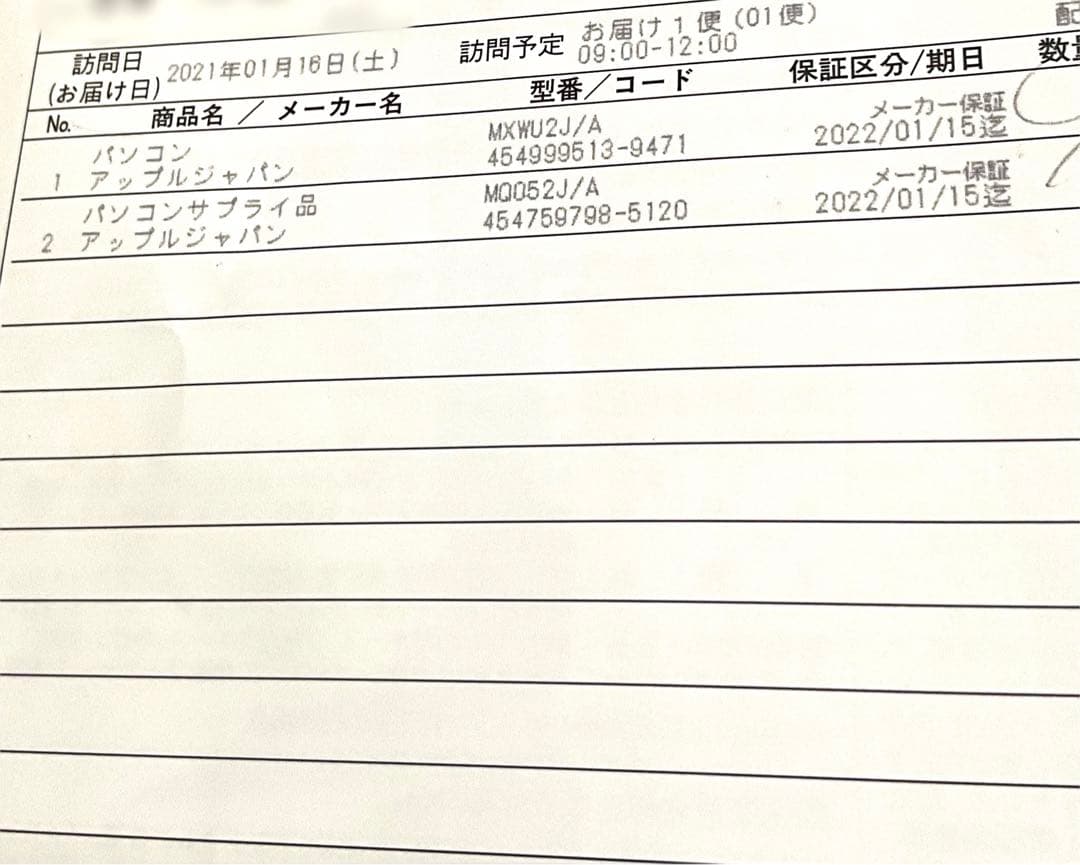 訪問日
(お届け日)
2021年01月16日(土)
訪問予定
お届け1便(01便)
09:00-12:00
配
No.
商品名 / メーカー名
型番/コード
保証区分/期日
数量
パソコン
1 アップルジャパン
MXWU2J/A
454999513-9471
メーカー保証
2022/01/15迄
パソコンサプライ品
2 アップルジャパン
MQ052J/A
454759798-5120
メーカー保証
2022/01/15迄